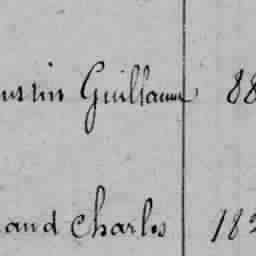 Guillaume 88
and Charles 18